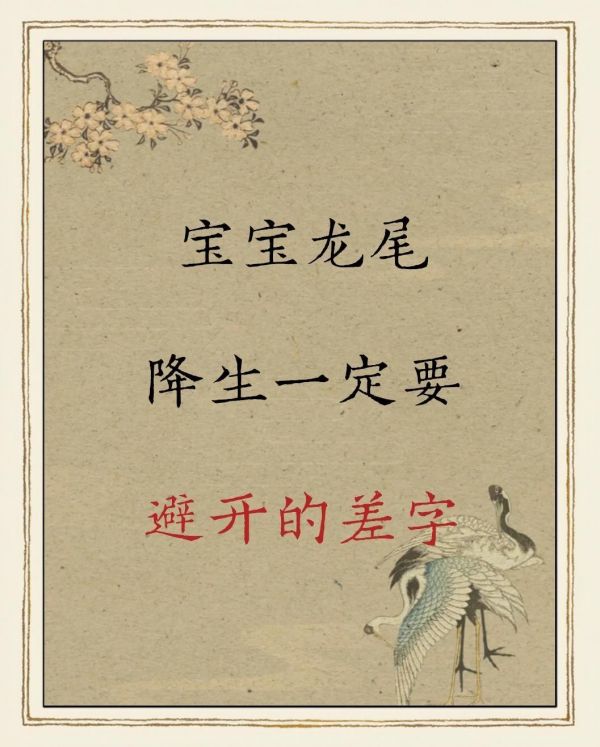 宝宝龙尾
降生一定要
避开的差字